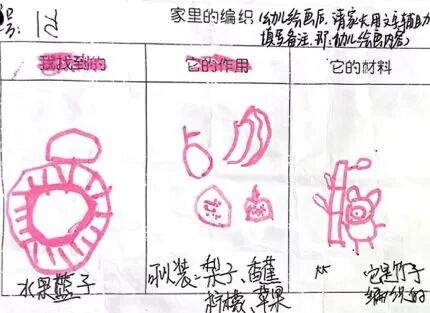 号: 12
家里的编织(幼儿绘画后,请家长用文字辅助
填写备注,即:幼儿绘画内容)
我找到的
它的作用
它的材料
水果蓝子
可以装:梨子、香蕉
柠檬、苹果
它是竹子
编织的